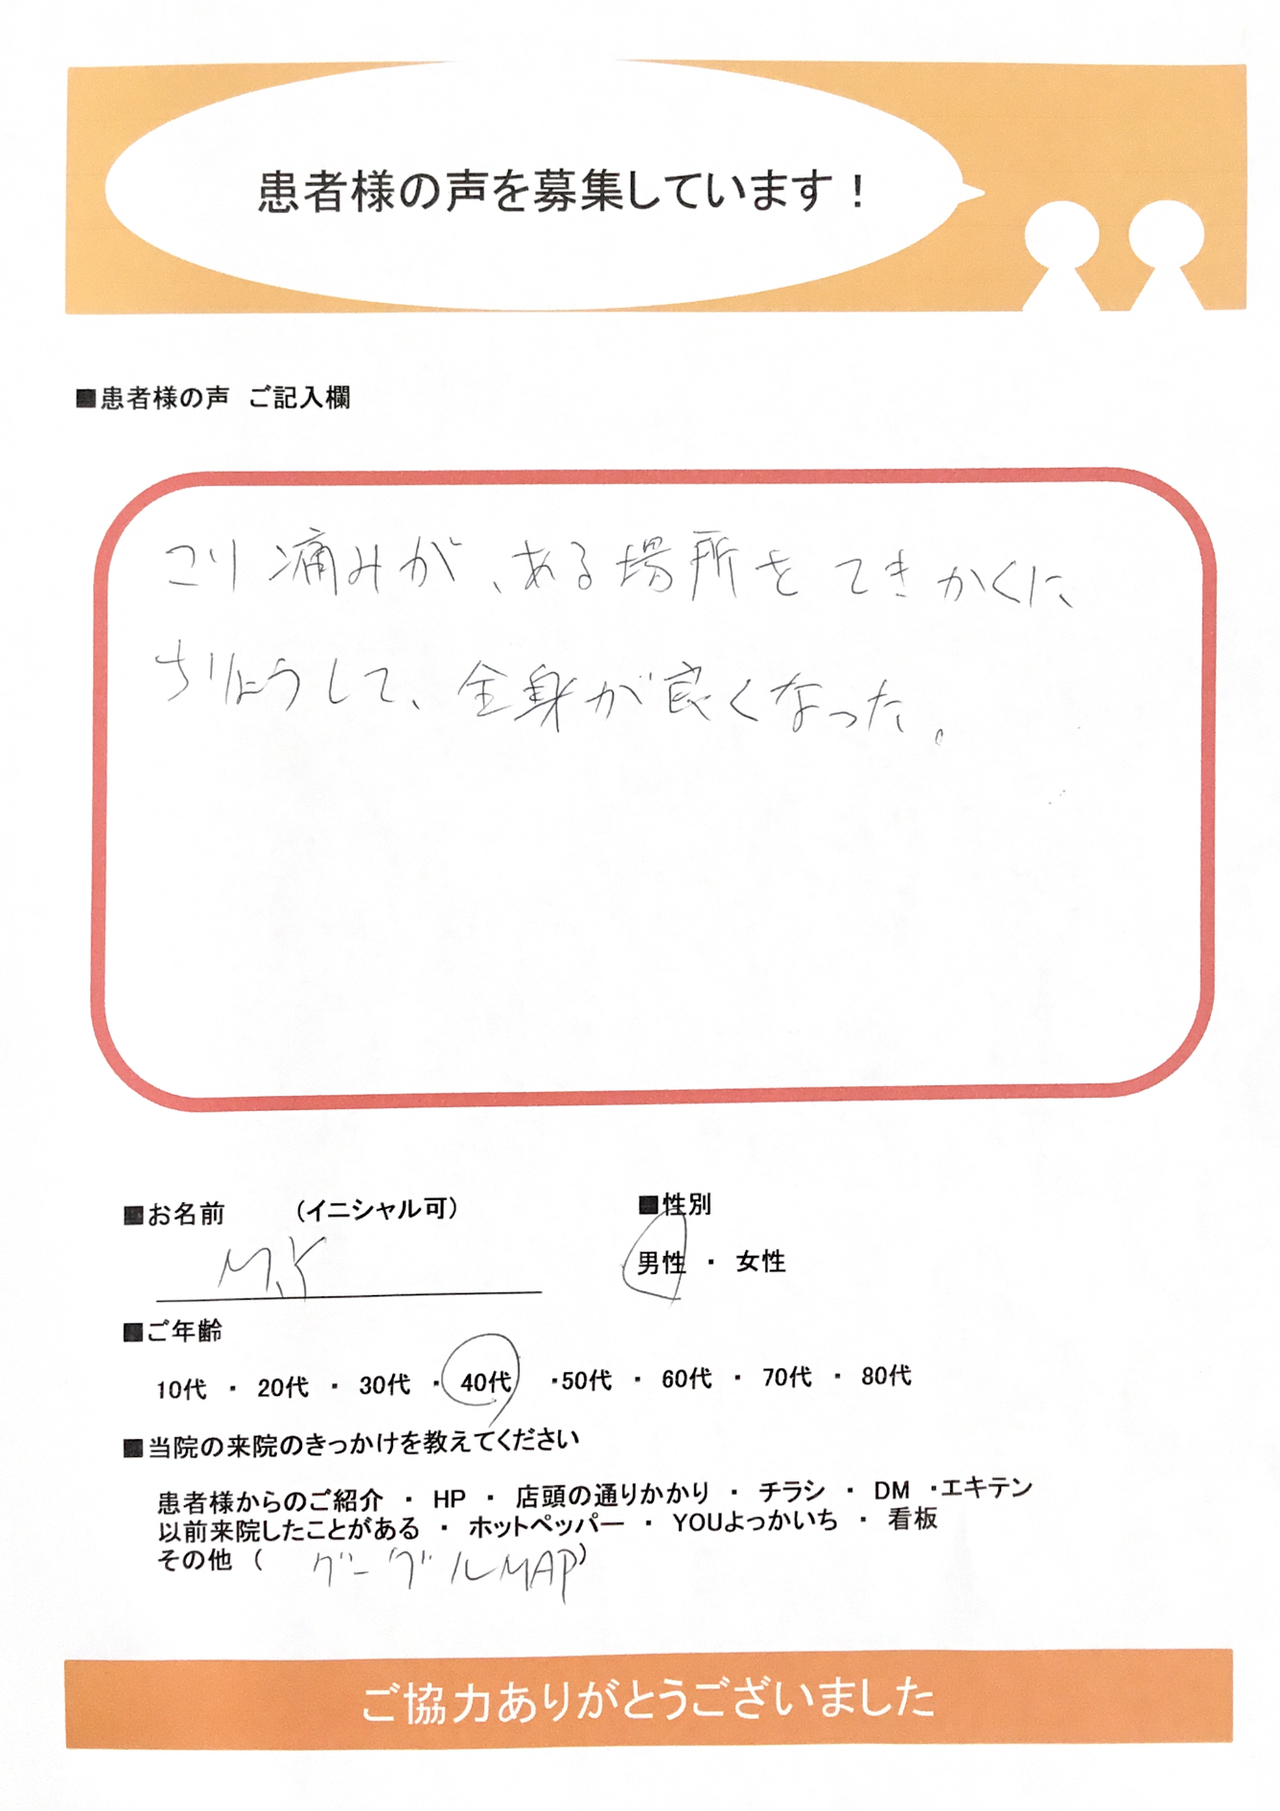 患者様の声を募集しています！
■患者様の声　ご記入欄
こり 痛みが、ある場所を てきかくに
ちりょうして、全身が良くなった。
■お名前　（イニシャル可）　■性別
M.Y　男性 ・ 女性
■ご年齢
10代 ・ 20代 ・ 30代 ・ 40代 ・50代 ・ 60代 ・ 70代 ・ 80代
■当院の来院のきっかけを教えてください
患者様からのご紹介 ・ HP ・ 店頭の通りかかり ・ チラシ ・ DM ・エキテン
以前来院したことがある ・ ホットペッパー ・ YOUよっかいち ・ 看板
その他（ グーグルMAP）
ご協力ありがとうございました